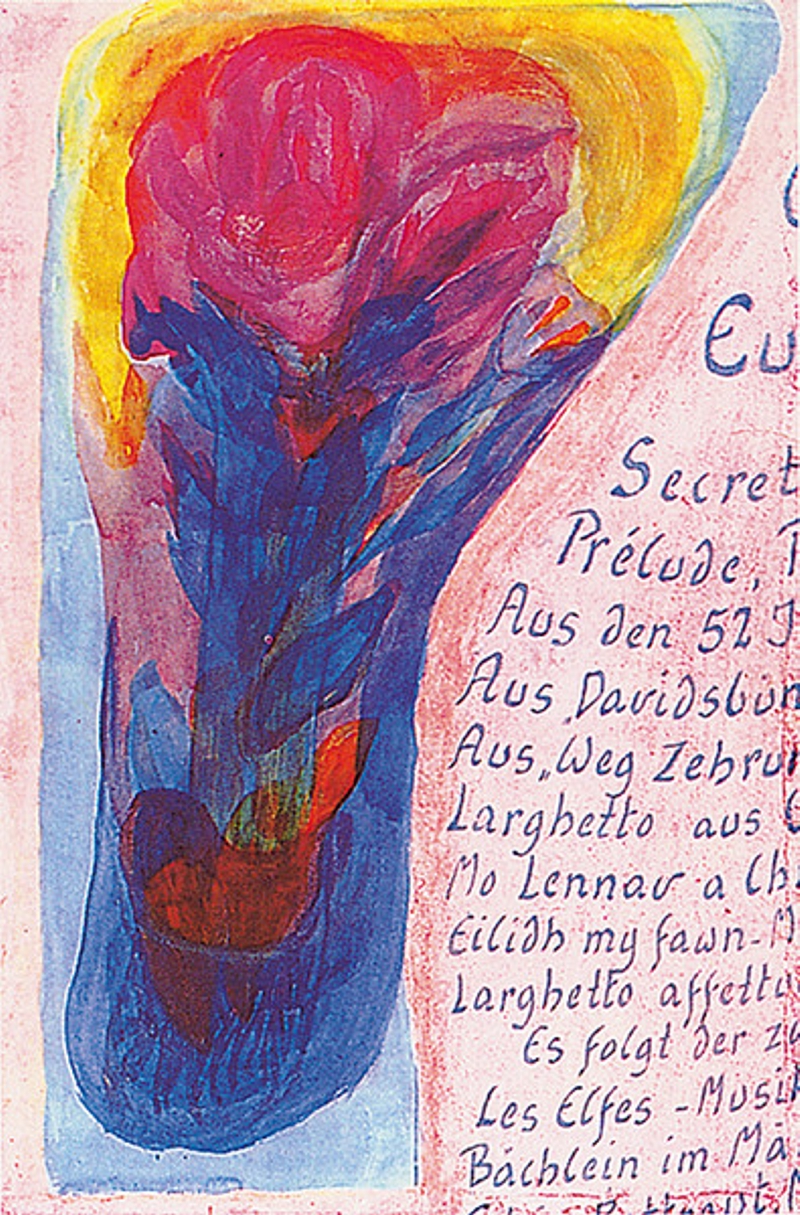 Eu
Secret
Prélude,
Aus den 52
Aus „Davidsbün
Aus „Weg Zehrun
Larghetto aus
Mo Lennav a Ch
Eilidh my fawn - M
Larghetto affettu
Es folgt der
Les Elfes - Musik
Bächlein im Mä